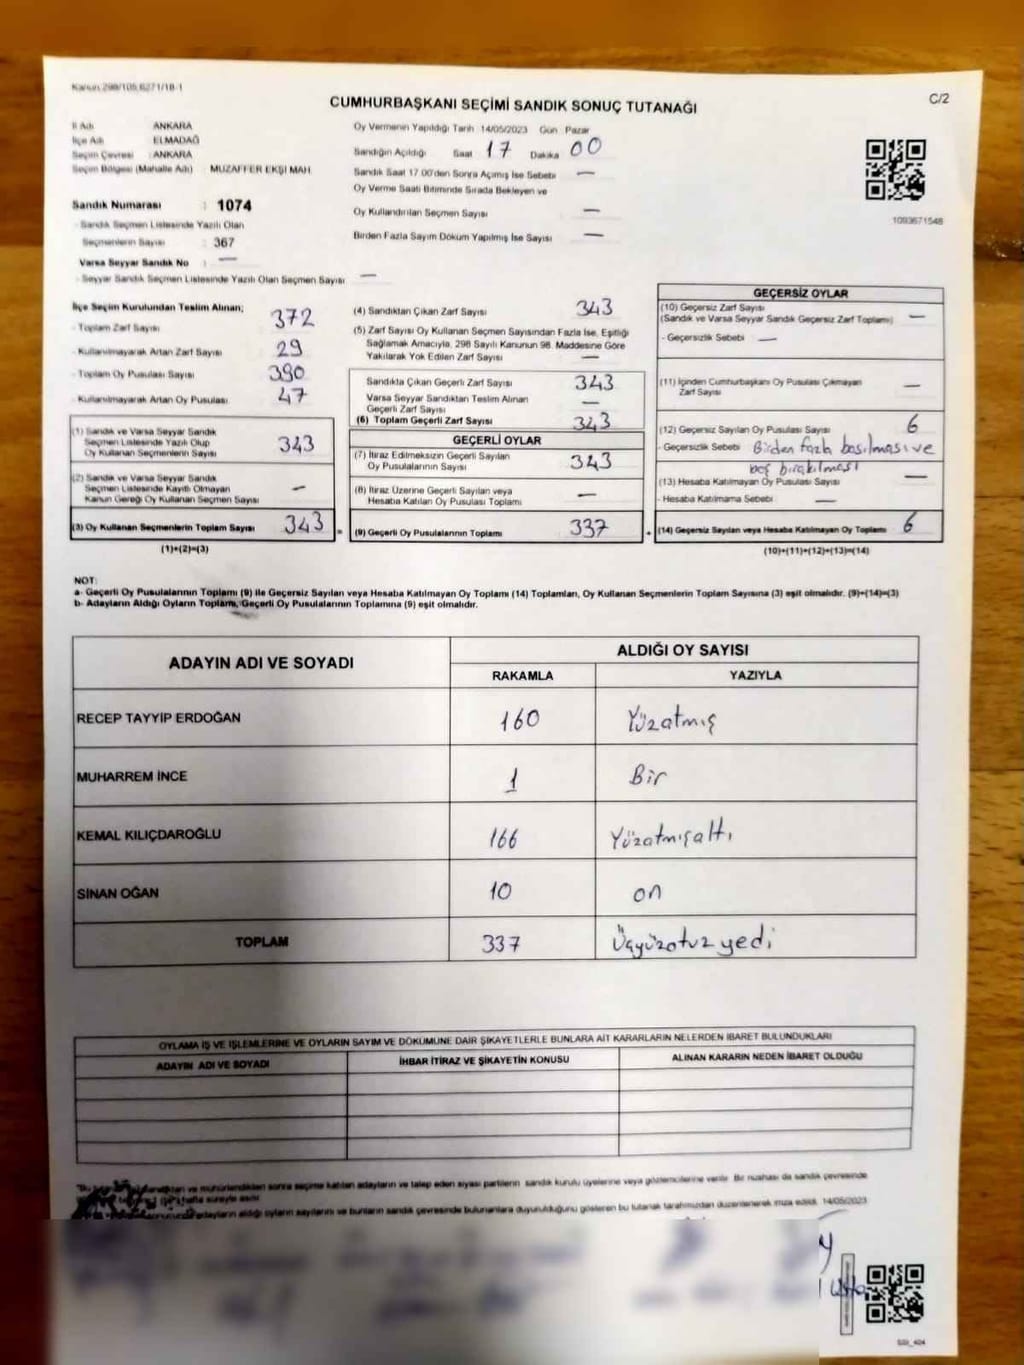 Kanun:298/105,6271/18-1
C/2
CUMHURBAŞKANI SEÇİMİ SANDIK SONUÇ TUTANAĞI
İl Adı ANKARA
İlçe Adı ELMADAĞ
Seçim Çevresi : ANKARA
Seçim Bölgesi (Mahalle Adı) : MUZAFFER EKŞİ MAH.
Sandık Numarası : 1074
- Sandık Seçmen Listesinde Yazılı Olan
Seçmenlerin Sayısı : 367
Varsa Seyyar Sandık No : —
- Seyyar Sandık Seçmen Listesinde Yazılı Olan Seçmen Sayısı : —
Oy Vermenin Yapıldığı Tarih 14/05/2023 Gün Pazar
Sandığın Açıldığı Saat 17 Dakika 00
Sandık Saat 17.00'den Sonra Açımış İse Sebebi —
Oy Verme Saati Bitiminde Sırada Bekleyen ve
Oy Kullandırılan Seçmen Sayısı —
Birden Fazla Sayım Döküm Yapılmış İse Sayısı —
1093671548
İlçe Seçim Kurulundan Teslim Alınan;
- Toplam Zarf Sayısı 372
- Kullanılmayarak Artan Zarf Sayısı 29
- Toplam Oy Pusulası Sayısı 390
- Kullanılmayarak Artan Oy Pusulası 47
(1) Sandık ve Varsa Seyyar Sandık
Seçmen Listesinde Yazılı Olup
Oy Kullanan Seçmenlerin Sayısı 343
(2) Sandık ve Varsa Seyyar Sandık
Seçmen Listesinde Kayıtlı Olmayan
Kanun Gereği Oy Kullanan Seçmen Sayısı —
(3) Oy Kullanan Seçmenlerin Toplam Sayısı 343 =
(1)+(2)=(3)
(4) Sandıktan Çıkan Zarf Sayısı 343
(5) Zarf Sayısı Oy Kullanan Seçmen Sayısından Fazla İse, Eşitliği
Sağlamak Amacıyla, 298 Sayılı Kanunun 98. Maddesine Göre
Yakılarak Yok Edilen Zarf Sayısı —
Sandıkta Çıkan Geçerli Zarf Sayısı 343
Varsa Seyyar Sandıktan Teslim Alınan
Geçerli Zarf Sayısı —
(6) Toplam Geçerli Zarf Sayısı 343
GEÇERLİ OYLAR
(7) İtiraz Edilmeksizin Geçerli Sayılan
Oy Pusulalarının Sayısı 343
(8) İtiraz Üzerine Geçerli Sayılan veya
Hesaba Katılan Oy Pusulası Toplamı —
(9) Geçerli Oy Pusulalarının Toplamı 337 +
GEÇERSİZ OYLAR
(10) Geçersiz Zarf Sayısı
(Sandık ve Varsa Seyyar Sandık Geçersiz Zarf Toplamı) —
- Geçersizlik Sebebi —
(11) İçinden Cumhurbaşkanı Oy Pusulası Çıkmayan
Zarf Sayısı —
(12) Geçersiz Sayılan Oy Pusulası Sayısı 6
- Geçersizlik Sebebi Birden fazla basılması ve
boş bırakılması
(13) Hesaba Katılmayan Oy Pusulası Sayısı —
- Hesaba Katılmama Sebebi —
(14) Geçersiz Sayılan veya Hesaba Katılmayan Oy Toplamı 6
(10)+(11)+(12)+(13)=(14)
NOT:
a- Geçerli Oy Pusulalarının Toplamı (9) ile Geçersiz Sayılan veya Hesaba Katılmayan Oy Toplamı (14) Toplamları, Oy Kullanan Seçmenlerin Toplam Sayısına (3) eşit olmalıdır. (9)+(14)=(3)
b- Adayların Aldığı Oyların Toplamı, Geçerli Oy Pusulalarının Toplamına (9) eşit olmalıdır.
ADAYIN ADI VE SOYADI
ALDIĞI OY SAYISI
RAKAMLA YAZIYLA
RECEP TAYYİP ERDOĞAN 160 Yüzatmış
MUHARREM İNCE 1 Bir
KEMAL KILIÇDAROĞLU 166 Yüzatmışaltı
SİNAN OĞAN 10 on
TOPLAM 337 Üçyüzotuzyedi
OYLAMA İŞ VE İŞLEMLERİNE VE OYLARIN SAYIM VE DÖKÜMÜNE DAİR ŞİKAYETLERLE BUNLARA AİT KARARLARIN NELERDEN İBARET BULUNDUKLARI
ADAYIN ADI VE SOYADI İHBAR İTİRAZ VE ŞİKAYETİN KONUSU ALINAN KARARIN NEDEN İBARET OLDUĞU
mühürlendikten sonra seçime katılan adayların ve talep eden siyasi partilerin sandık kurulu üyelerine veya gözlemcilerine verilir. Bir nüshası da sandık çevresinde
hafta süreyle asılır.
adayların aldığı oyların sayılarını ve bunların sandık çevresinde bulunanlara duyurulduğunu gösteren bu tutanak tarafımızdan düzenlenerek imza edildi. 14/05/2023